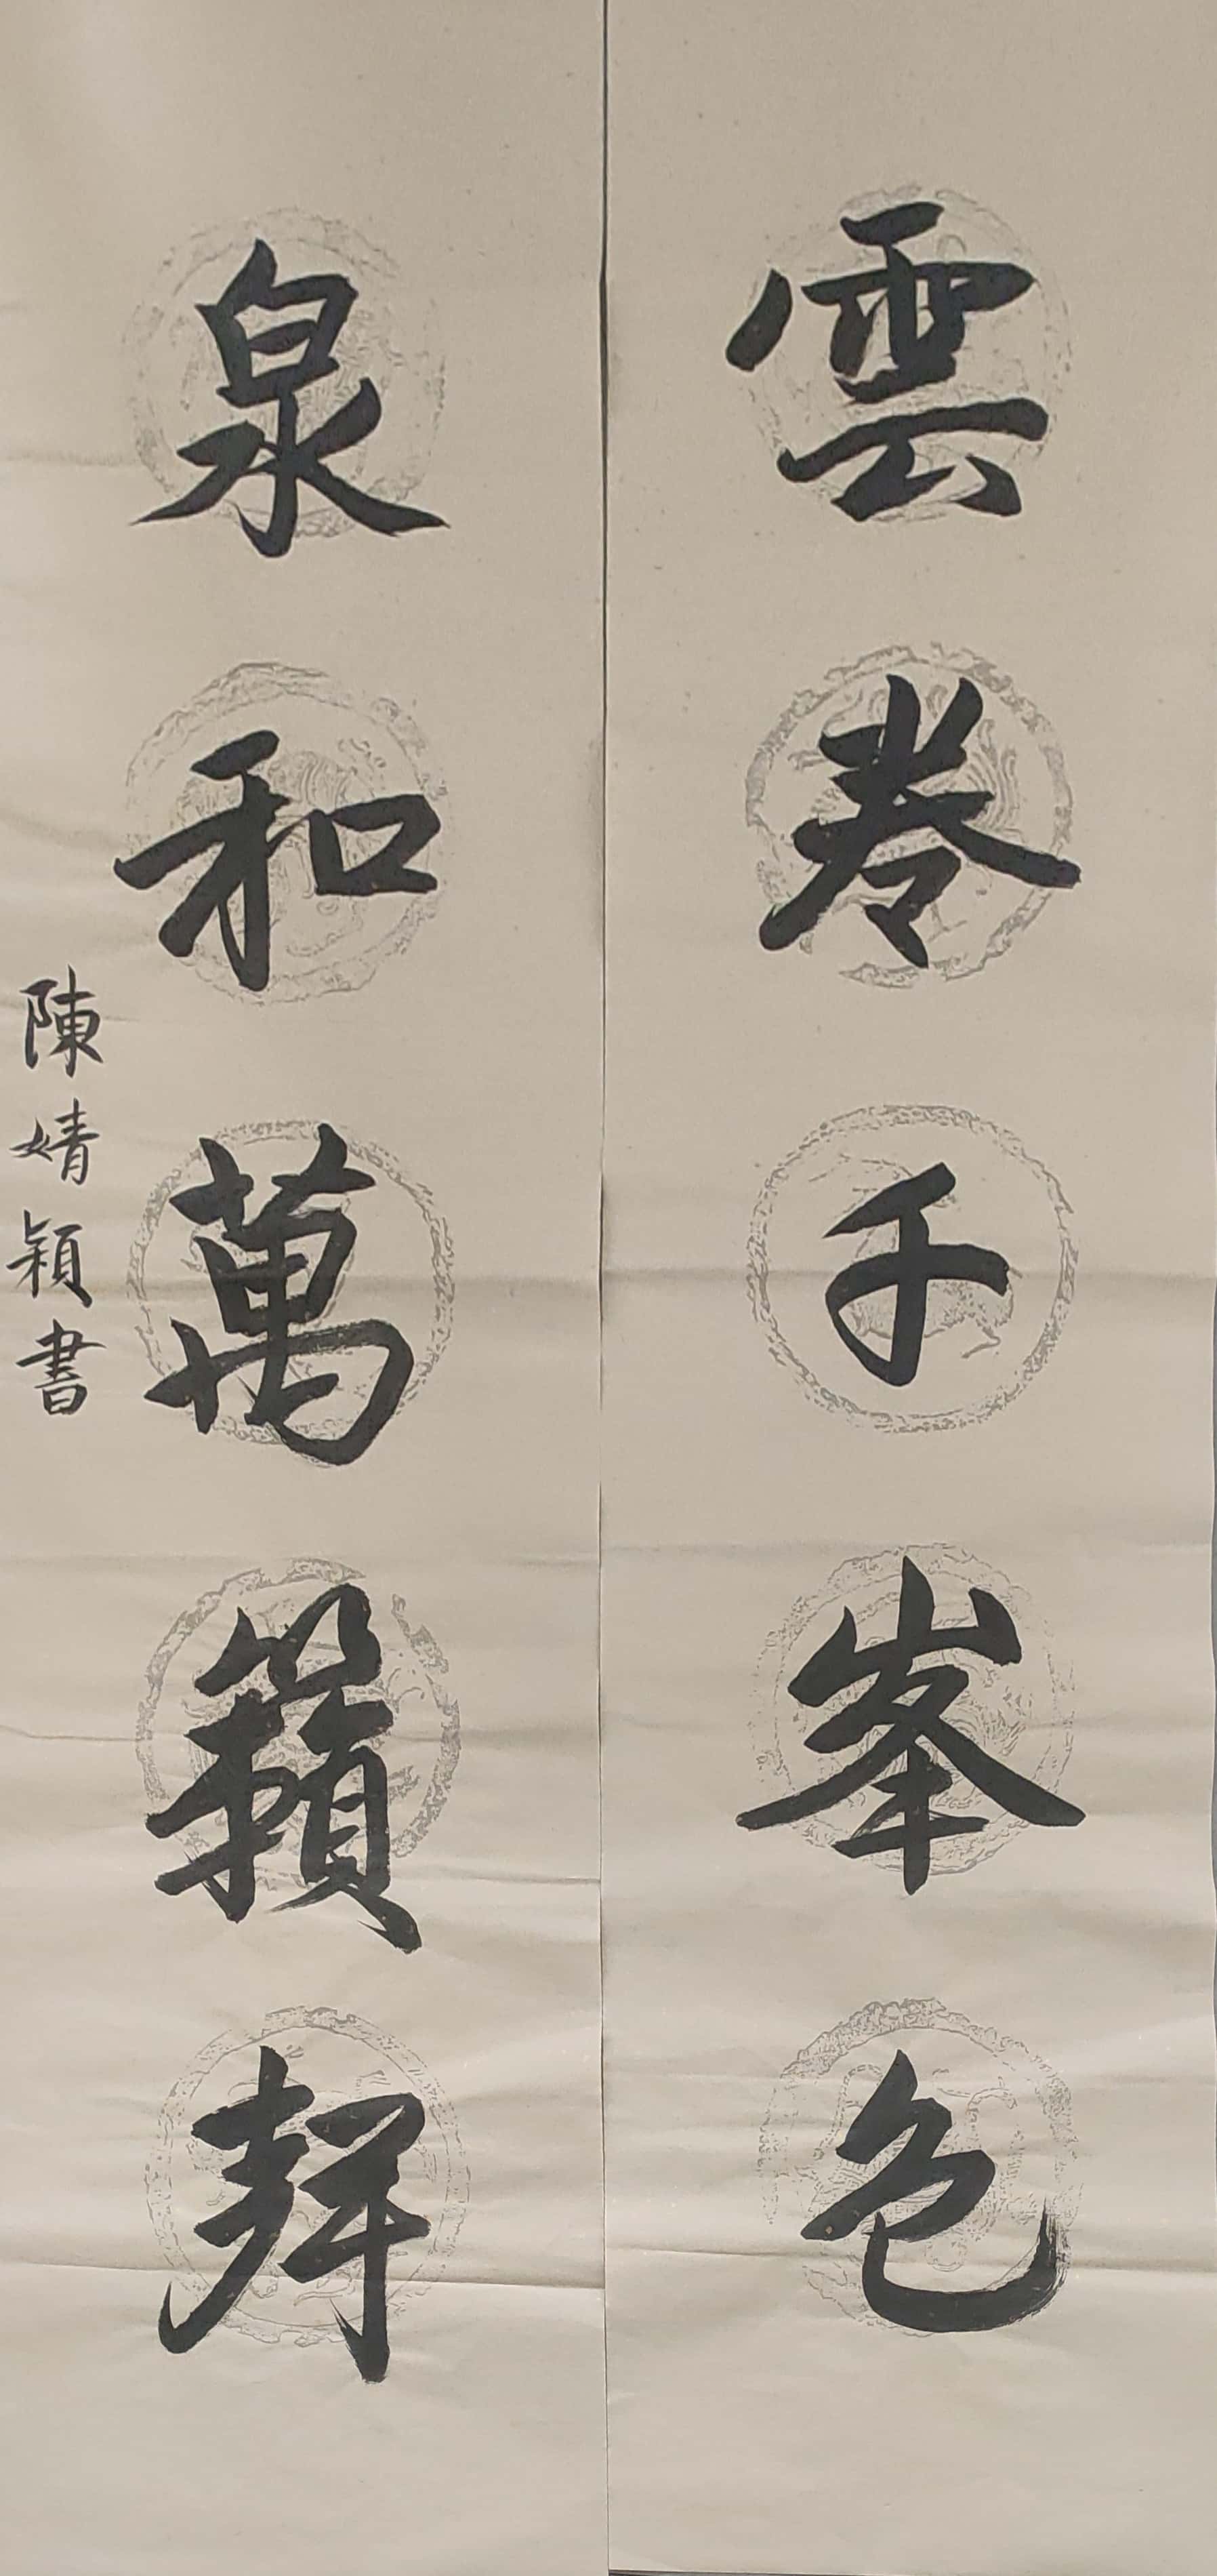 雲卷千峯色
泉和萬籟聲
陳婧穎書